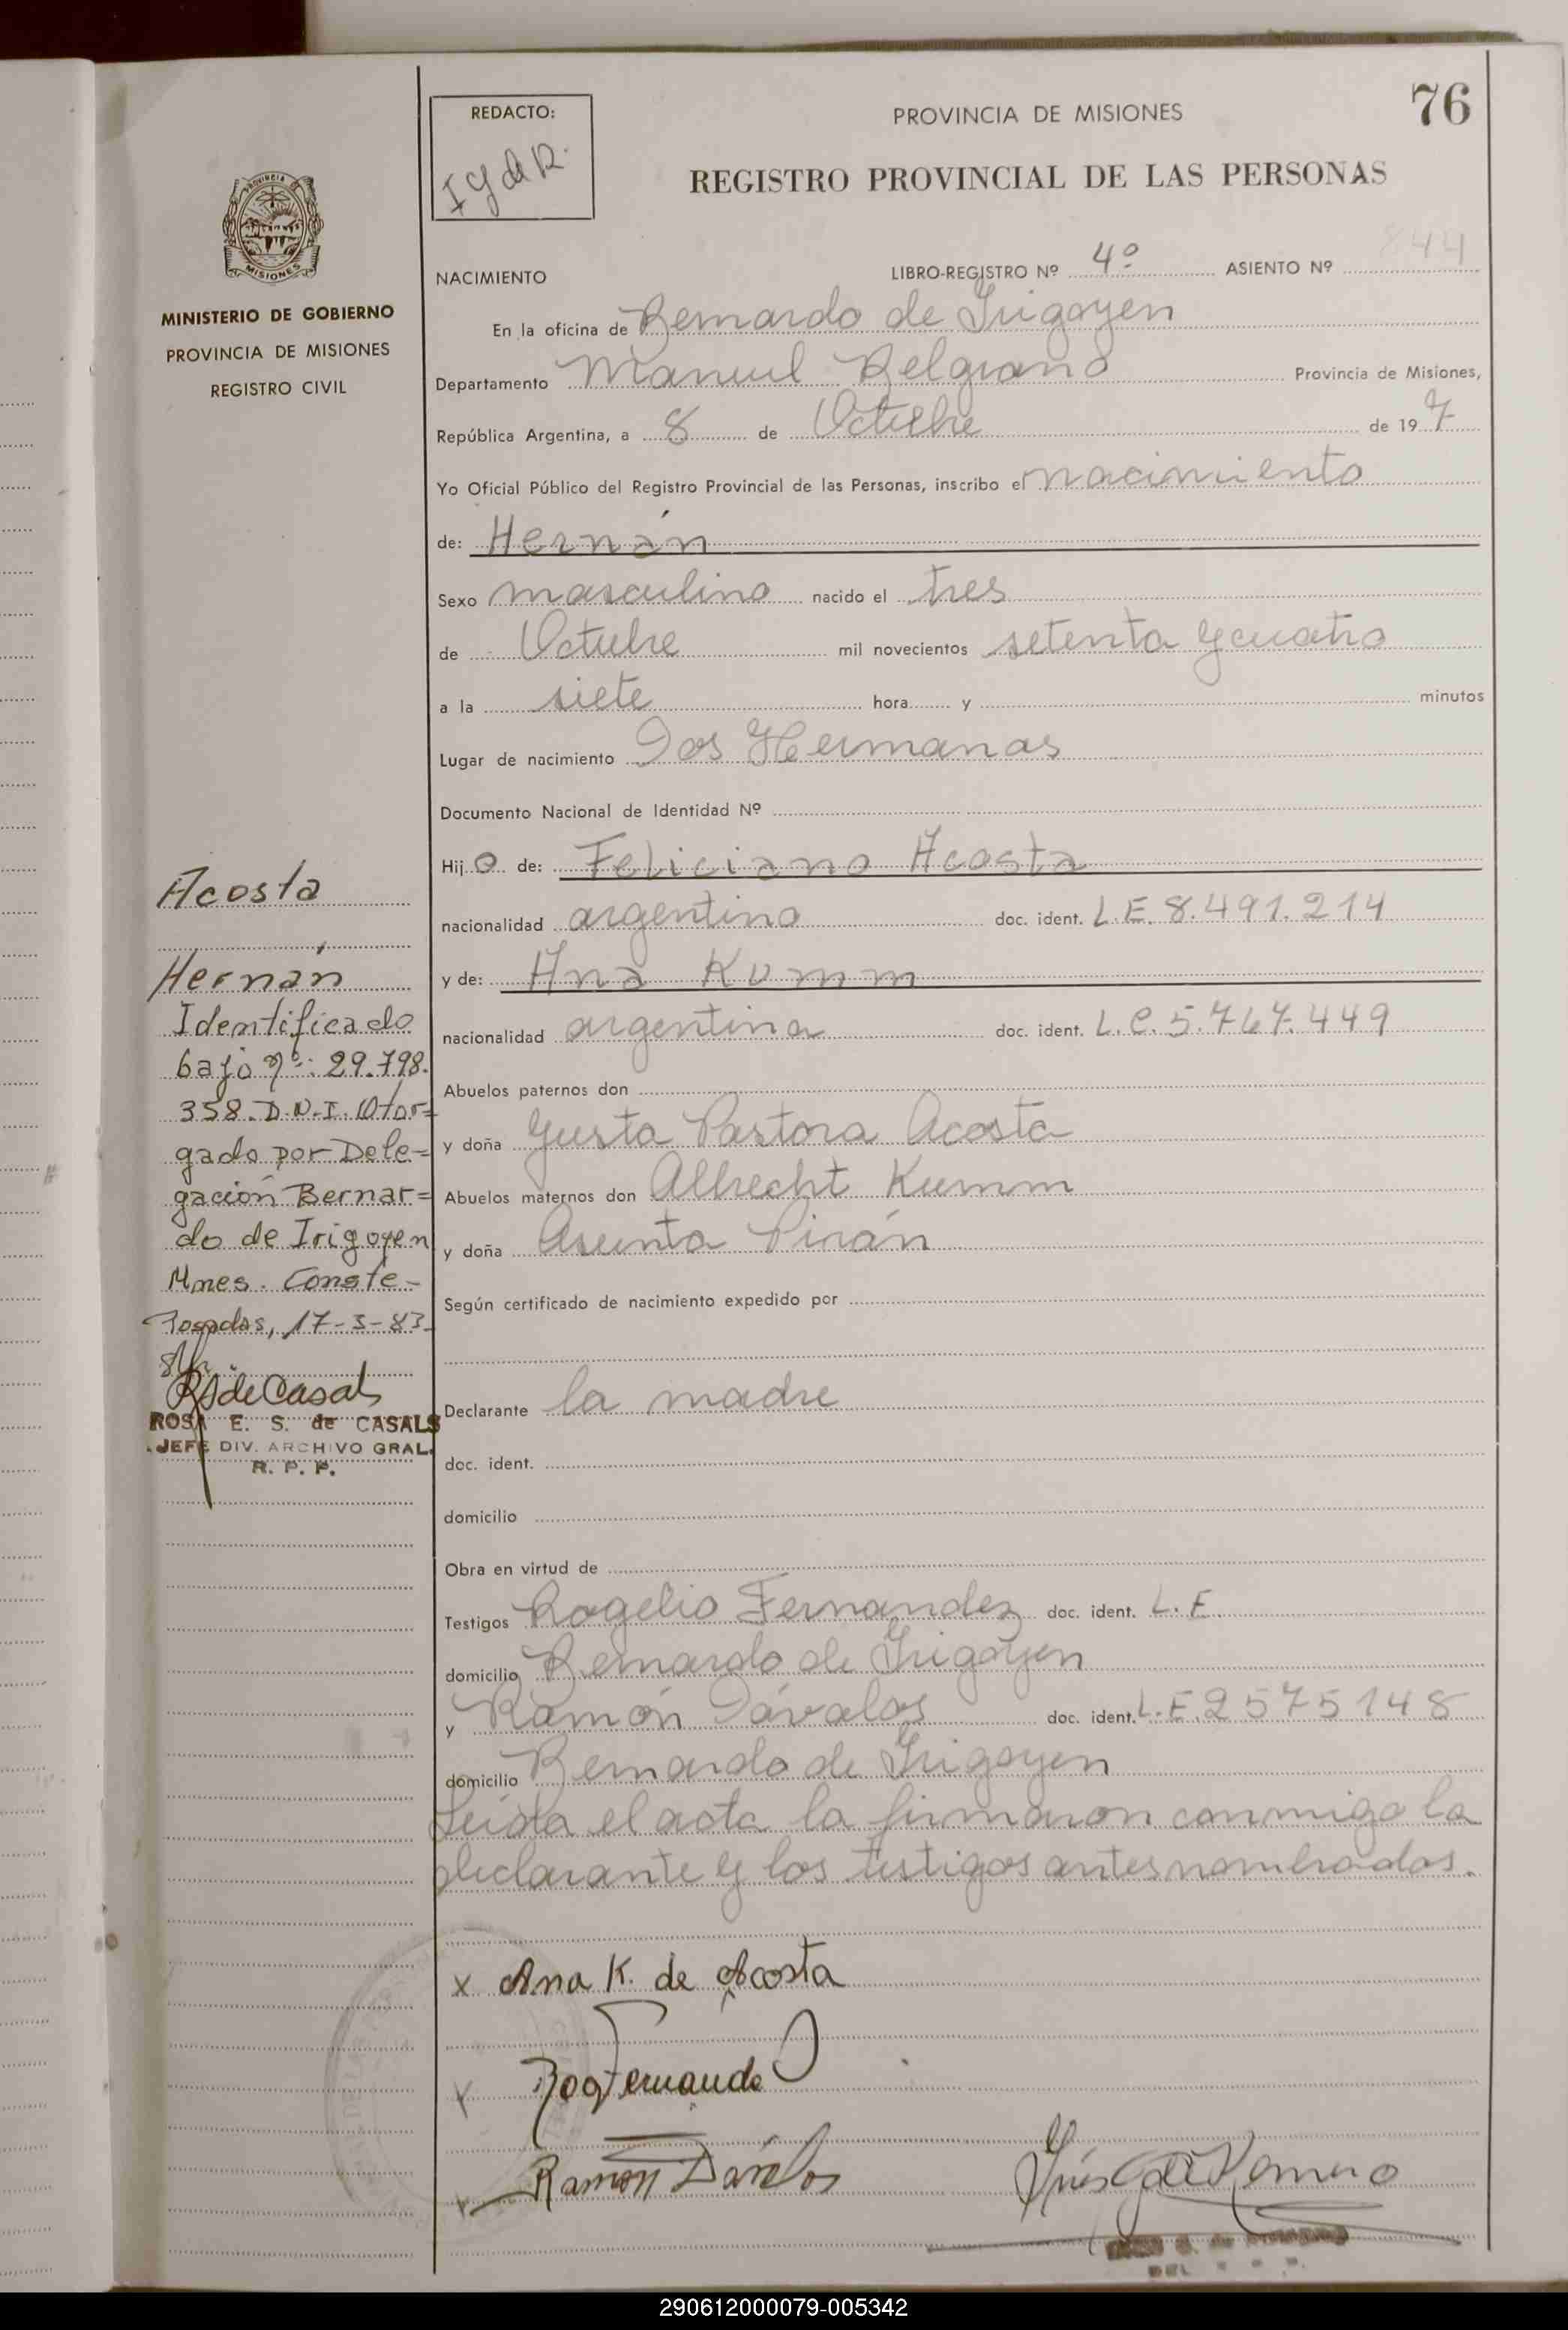 76
REDACTO:
I G de R.
PROVINCIA DE MISIONES
REGISTRO PROVINCIAL DE LAS PERSONAS
PROVINCIA DE
MISIONES
MINISTERIO DE GOBIERNO
PROVINCIA DE MISIONES
REGISTRO CIVIL
NACIMIENTO LIBRO-REGISTRO Nº 4º ASIENTO Nº 844
En la oficina de Bernardo de Irigoyen
Departamento Manuel Belgrano Provincia de Misiones,
República Argentina, a 8 de Octubre de 19 7
Yo Oficial Público del Registro Provincial de las Personas, inscribo el nacimiento
de: Hernán
Sexo masculino nacido el tres
de Octubre mil novecientos setenta y cuatro
a la siete hora y minutos
Lugar de nacimiento Dos Hermanas
Documento Nacional de Identidad Nº
Hij o de: Feliciano Acosta
nacionalidad argentino doc. ident. L.E. 8.491.214
y de: Ana Kumm
nacionalidad argentina doc. ident. L.C. 5.767.449
Abuelos paternos don
y doña Justa Pastora Acosta
Abuelos maternos don Albrecht Kumm
y doña Asunta Pirán
Según certificado de nacimiento expedido por
Declarante la madre
doc. ident.
domicilio
Obra en virtud de
Testigos Rogelio Fernandez doc. ident. L.E.
domicilio Bernardo de Irigoyen
y Ramón Dávalos doc. ident. L.E. 2575148
domicilio Bernardo de Irigoyen
Leída el acta la firmaron conmigo la
declarante y los testigos antes nombrados.
x Ana K. de Acosta
Rog Fernande
Ramon Dávalos
Inés G de Romero
Acosta
Hernán
Identificado
bajo nº: 29.798.
358. D.N.I. Otor=
gado por Dele=
gación Bernar=
do de Irigoyen
Mnes. Conste.-
Posadas, 17-3-83
RS de Casals
ROSA E. S. de CASALS
JEFE DIV. ARCHIVO GRAL.
R. P. P.
290612000079-005342